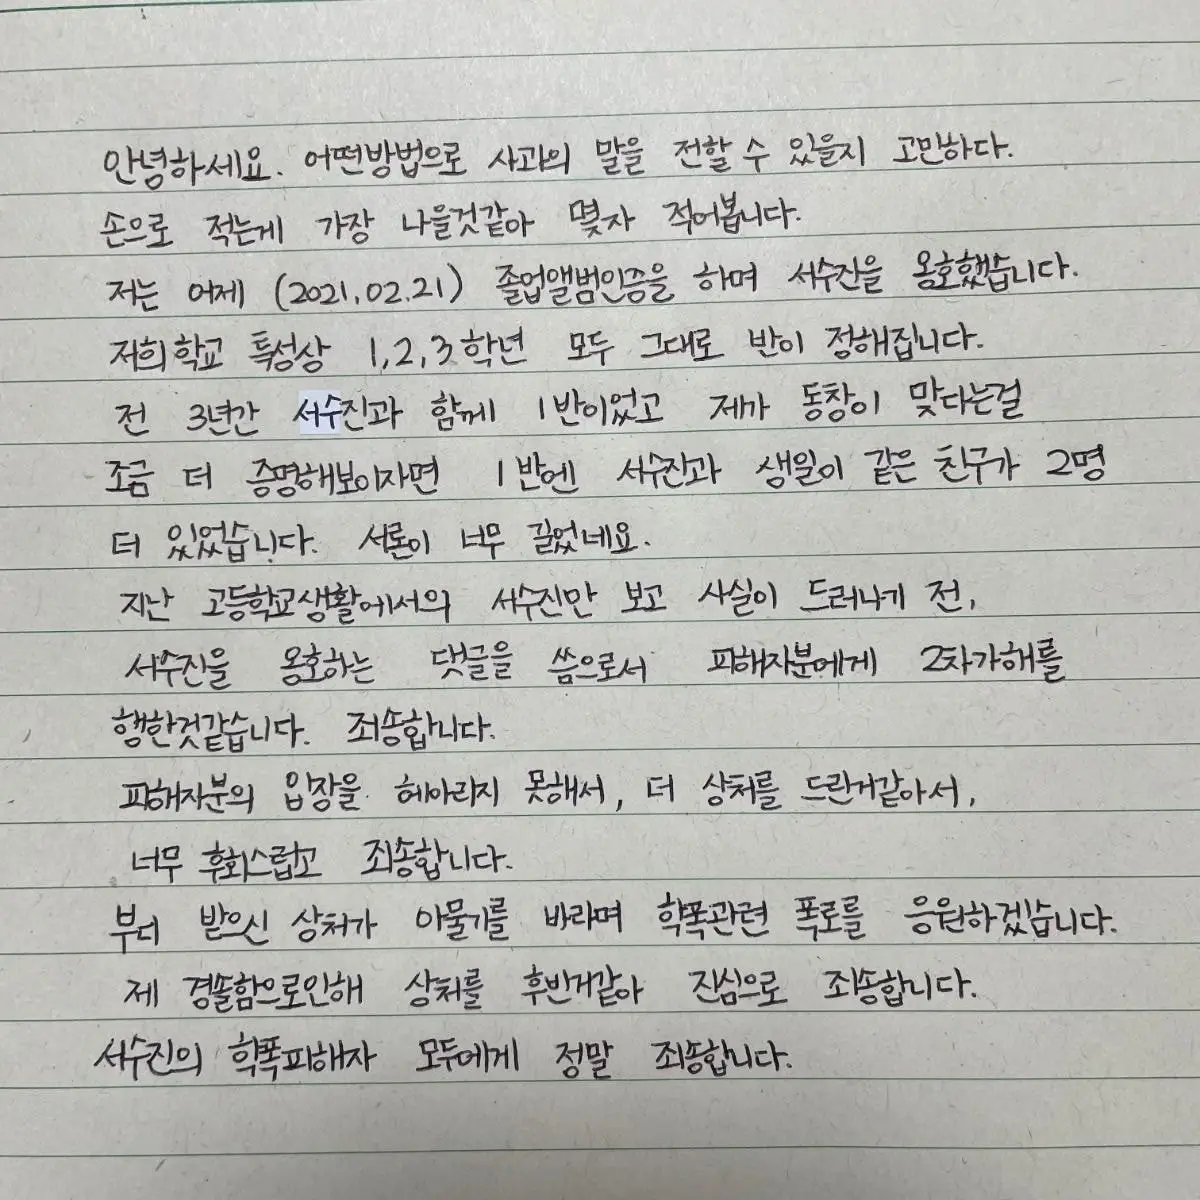 안녕하세요. 어떤방법으로 사과의 말을 전할 수 있을지 고민하다.
손으로 적는게 가장 나을것같아 몇자 적어봅니다.
저는 어제 (2021.02.21) 졸업앨범인증을 하며 서수진을 옹호했습니다.
저희학교 특성상 1,2,3학년 모두 그대로 반이 정해집니다.
전 3년간 서수진과 함께 1반이었고 제가 동창이 맞다는걸
조금 더 증명해보이자면 1반엔 서수진과 생일이 같은 친구가 2명
더 있었습니다. 서론이 너무 길었네요.
지난 고등학교생활에서의 서수진만 보고 사실이 드러나기 전,
서수진을 옹호하는 댓글을 씀으로서 피해자분에게 2차가해를
행한것같습니다. 죄송합니다.
피해자분의 입장을 헤아리지 못해서, 더 상처를 드린거같아서,
너무 후회스럽고 죄송합니다.
부디 받으신 상처가 아물기를 바라며 학폭관련 폭로를 응원하겠습니다.
제 경솔함으로인해 상처를 후반거같아 진심으로 죄송합니다.
서수진의 학폭피해자 모두에게 정말 죄송합니다.